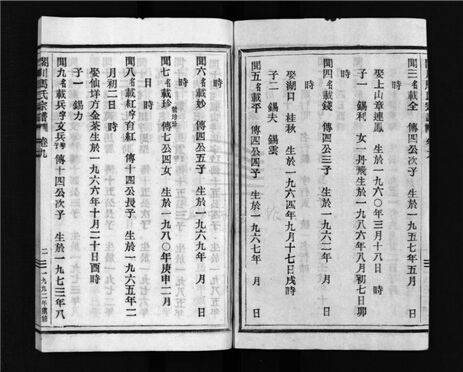 聞三名載全 傳四公次子 生於一九五七年五月 日
時
娶上山章連鳳 生於一九六〇年三月十八日 時
子一 錫利 女一丹飛生於一九八六年八月初七日卯
時
聞四名載錢 傳四公三子 生於一九六二年 月 日
時
娶湖口 桂秋 生於一九六四年九月十七日戌時
子二 錫夫 錫雲
聞五名載平 傳四公四子 生於一九六七年 月 日
聞六名載妙 傳四公五子 生於一九六九年 月 日
時
聞七名載珍 傳七公四女 生於一九七〇年庚申二月
日 時
聞八名載紅字育紅 傳十四公長子 生於一九六五年二
月初二日 時
娶仙坪方金茶生於一九六六年十月二十日酉時
子一 錫力
聞九名載兵字文兵 傳十四公次子 生於一九七三年八
馬氏宗譜 卷九
一九九二年